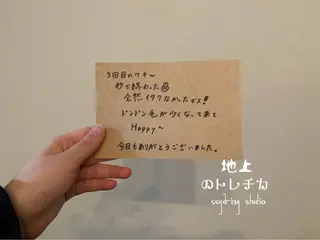 3回目のワキ〜
秒で終わった
全然イタクなかったデス!
ドンドン毛が少くなって来て
Happy〜
今日もありがとうございました。
地上
のトレチカ
sugaring studio